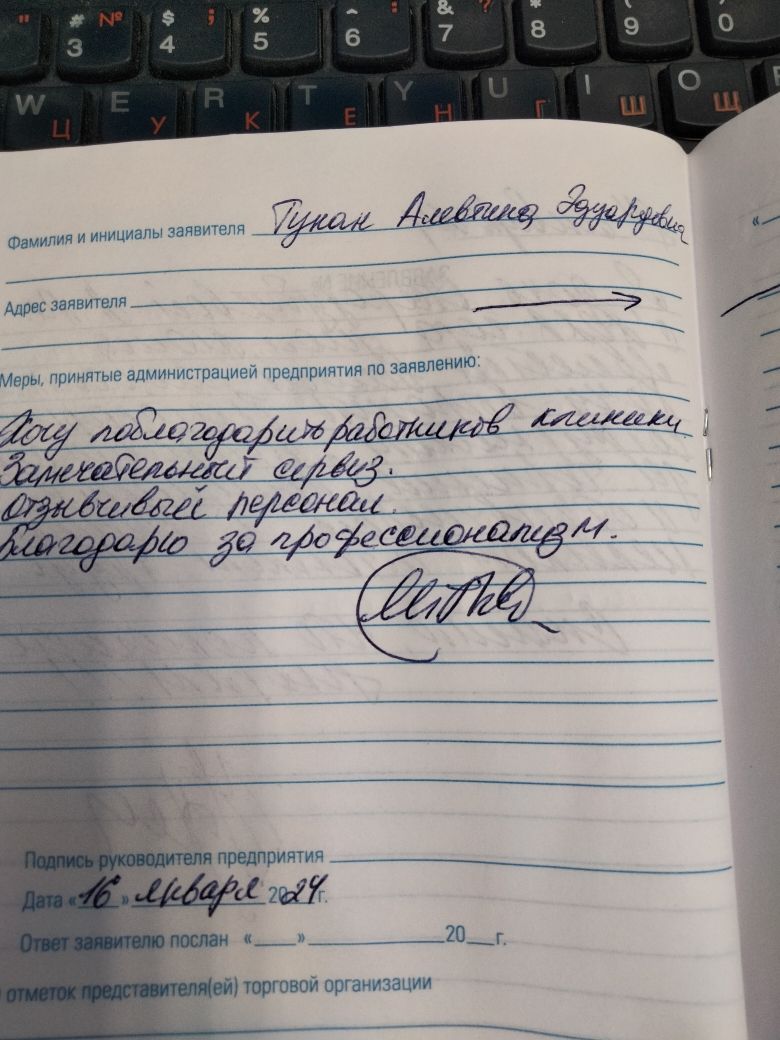 " # № 3 $ ; 4 % 5 ^ : 6 & ? 7 * 8 ( 9 ) 0
W Ц E У R К T Е Y Н U Г I Ш O Щ
Фамилия и инициалы заявителя Тукан Алевтина Эдуардовна
Адрес заявителя
Меры, принятые администрацией предприятия по заявлению:
Хочу поблагодарить работников клиники
Замечательный сервиз.
Отзывчивый персонал.
Благодарю за профессионализм.
Подпись руководителя предприятия
Дата «16» января 2024г.
Ответ заявителю послан « » 20 г.
отметок представителя(ей) торговой организации